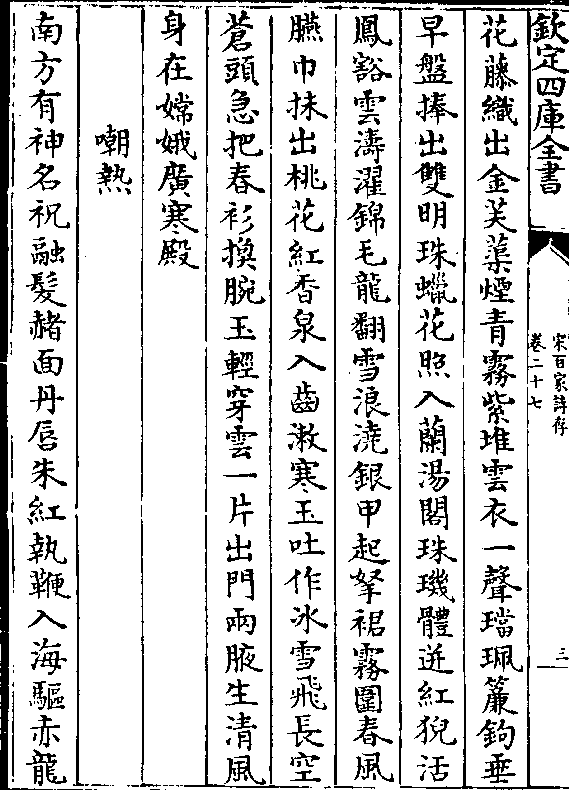 欽定四庫全書
宋百家詩存
卷二十七
三
花藤織出金芙蕖煙青霧紫堆雲衣一聲璫珮簾鉤垂
早盤捧出雙明珠蠟花照入蘭湯閣珠璣體迸紅猊活
鳳豁雲濤濯錦毛龍翻雪浪澆銀甲起拏裙霧圍春風
臙巾抹出桃花紅香泉入齒漱寒玉吐作冰雪飛長空
蒼頭急把春衫換腕玉輕穿雲一片出門兩腋生清風
身在嫦娥廣寒殿
嘲熱
南方有神名祝融髮赭面丹唇朱紅執鞭入海驅赤龍